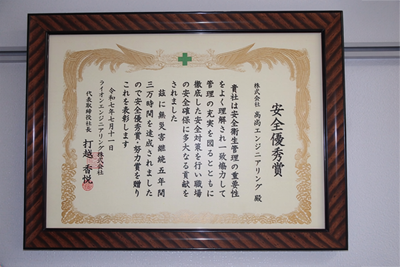 安全優秀賞
株式会社 高商エンジニアリング 殿
貴社は安全衛生管理の重要性
をよく理解され一致協力して
管理の充実を図るとともに
徹底した安全対策を行い職場
の安全確保に多大なる貢献を
されました
茲に無災害継続五年間
三万時間を達成されました
ので安全優秀賞・努力賞を贈り
これを表彰します
令和七年七月十一日
ライオンエンジニアリング株式会社
代表取締役社長 打越 香悦